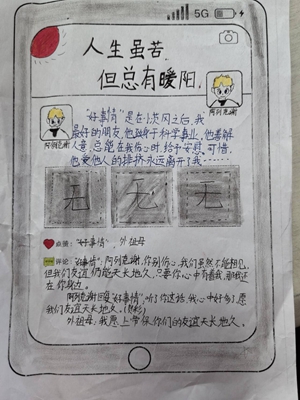 5G
人生虽苦
但总有暖阳.
阿列克谢
"好事情"是在小茨冈之后,我
最好的朋友,他献身于科学事业,他善解
阿列克谢
人意,总能在我伤心时,给予安慰,可惜,
他受他人的排挤永远离开了我……
无 无 无
点赞:"好事情",外祖母
评论:"好事情":阿列克谢,你别伤心,我们虽然不能相见,
但我们友谊仍能天长地久,只要你心中有我,那我还
在你身边。
阿列克谢回复"好事情":听了你这话,我心中好多了,愿
我们友谊天长地久。
外祖母:我愿上帝保你们的友谊天长地久。